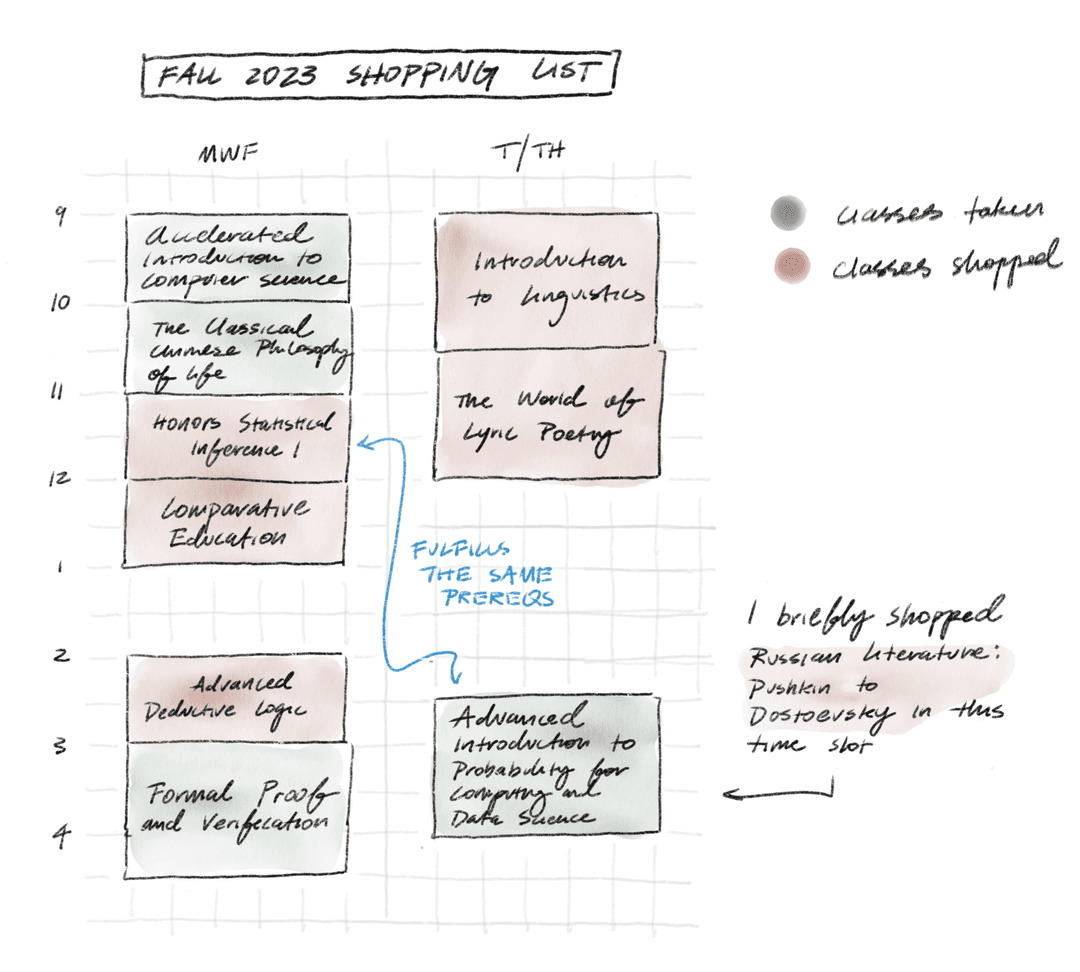 FALL 2023 SHOPPING LIST
MWF
T/TH
9
10
11
12
1
2
3
4
Accelerated
Introduction to
Computer Science
The Classical
Chinese Philosophy
of Life
Honors Statistical
Inference I
Comparative
Education
Advanced
Deductive Logic
Formal Proof
and Verification
Introduction
to Linguistics
The World of
Lyric Poetry
FULFILLS
THE SAME
PREREQS
Advanced
Introduction to
Probability for
Computing and
Data Science
classes taken
classes shopped
I briefly shopped
Russian Literature:
Pushkin to
Dostoevsky in this
time slot